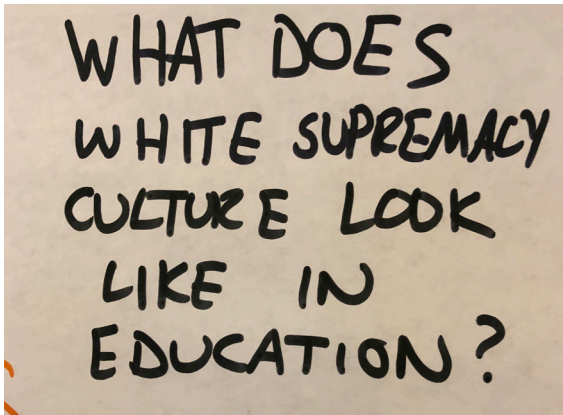 WHAT DOES
WHITE SUPREMACY
CULTURE LOOK
LIKE IN
EDUCATION?